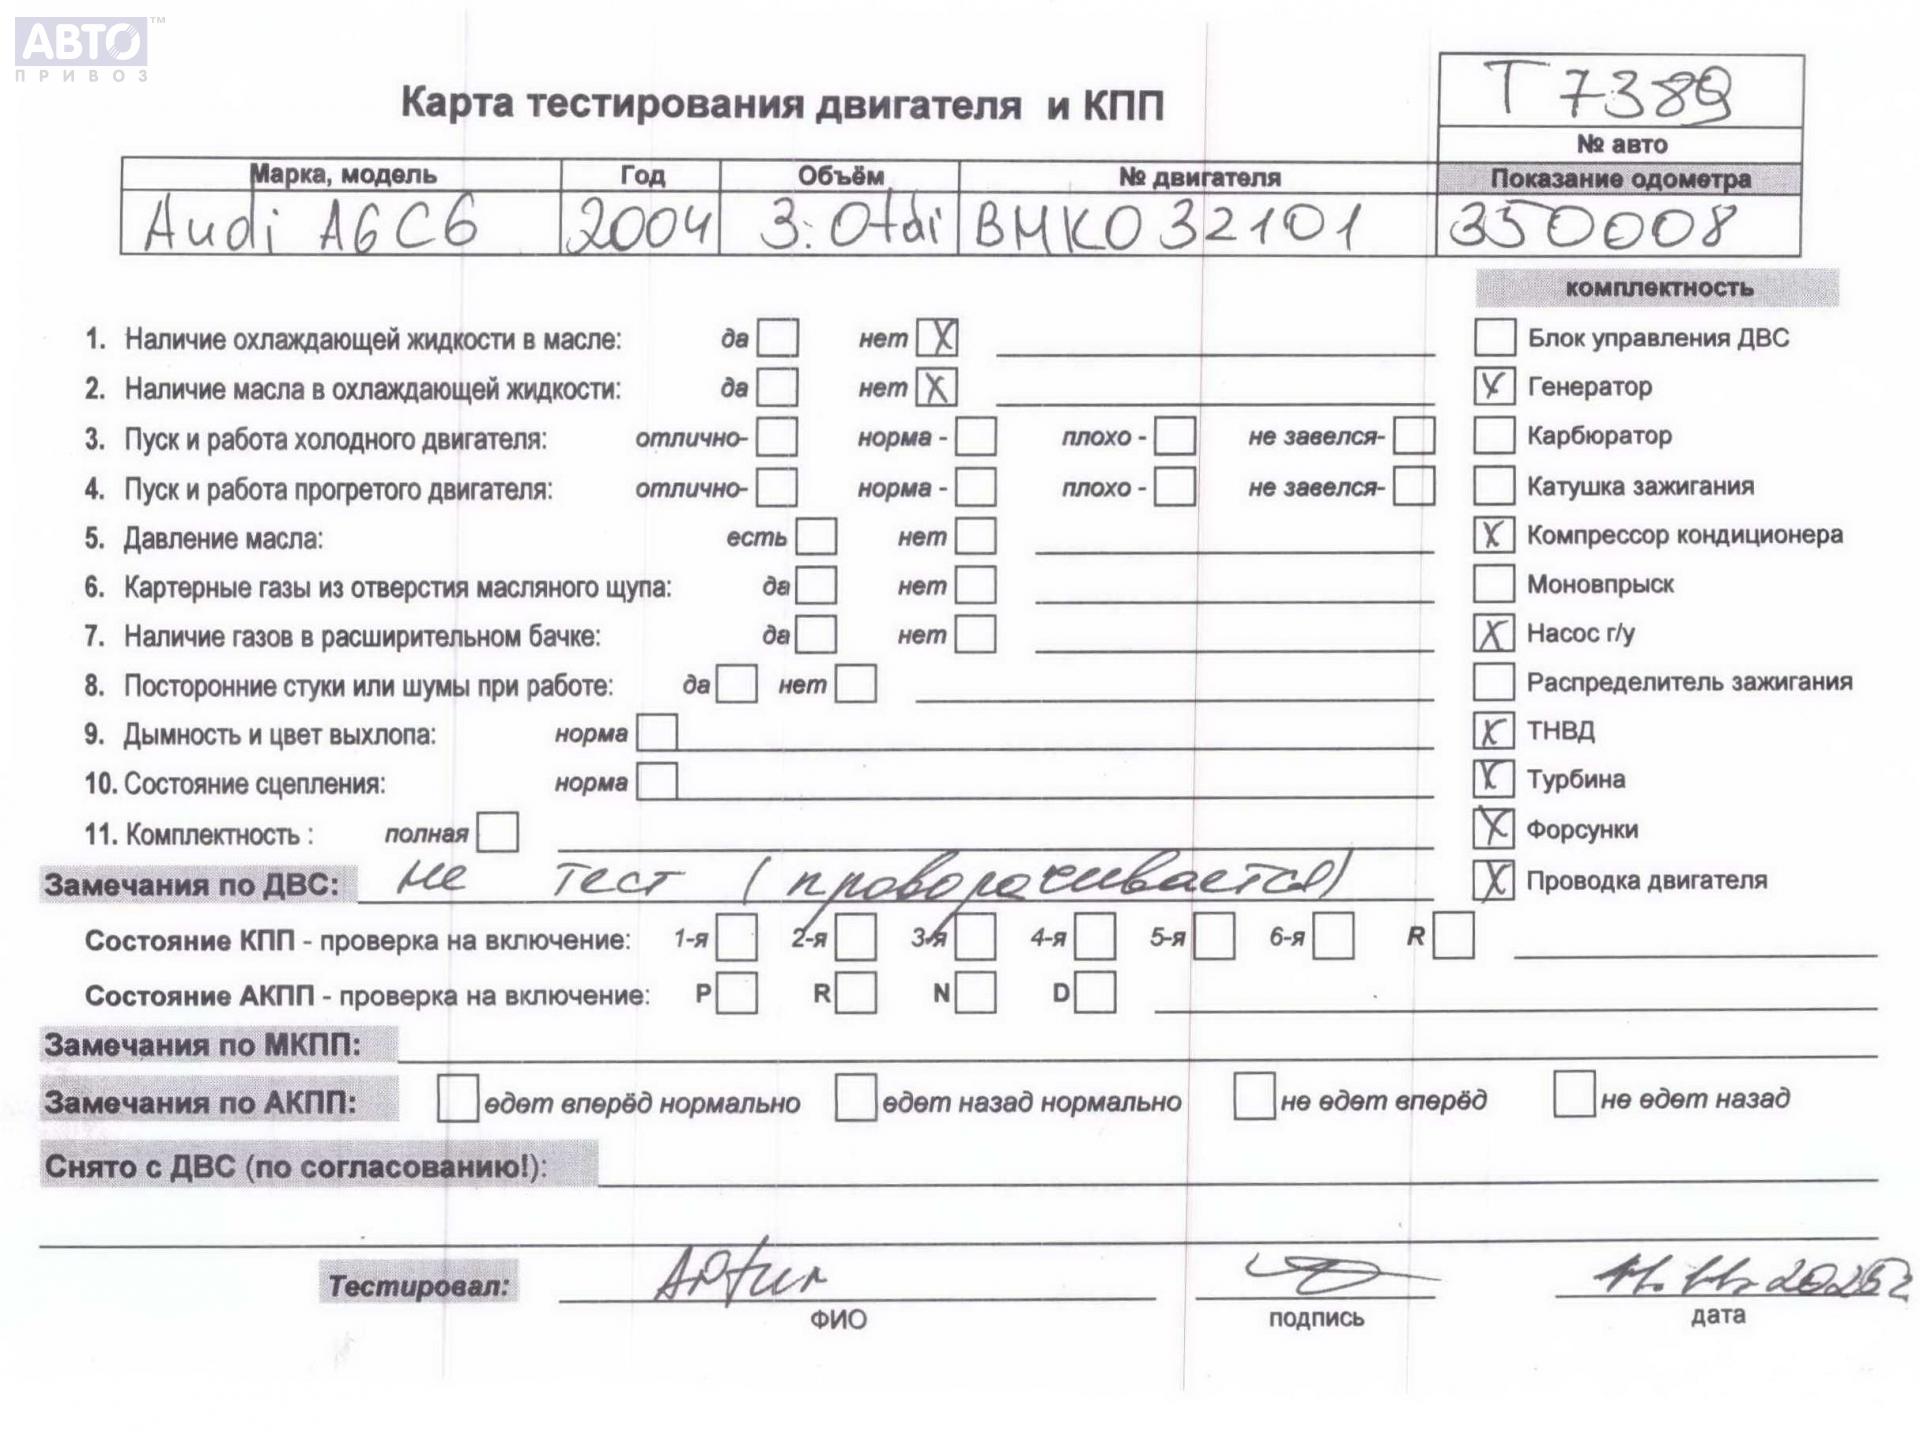 АВТО™
ПРИВОЗ
Карта тестирования двигателя и КПП
Т 7389
№ авто
Марка, модель Год Объём № двигателя Показание одометра
Audi A6C6 2004 3.0tdi BMK032101 350008
комплектность
1. Наличие охлаждающей жидкости в масле: да нет X
2. Наличие масла в охлаждающей жидкости: да нет X
3. Пуск и работа холодного двигателя: отлично- норма - плохо - не завелся-
4. Пуск и работа прогретого двигателя: отлично- норма - плохо - не завелся-
5. Давление масла: есть нет
6. Картерные газы из отверстия масляного щупа: да нет
7. Наличие газов в расширительном бачке: да нет
8. Посторонние стуки или шумы при работе: да нет
9. Дымность и цвет выхлопа: норма
10. Состояние сцепления: норма
11. Комплектность : полная
Блок управления ДВС
X Генератор
Карбюратор
Катушка зажигания
X Компрессор кондиционера
Моновпрыск
X Насос г/у
Распределитель зажигания
X ТНВД
X Турбина
X Форсунки
X Проводка двигателя
Замечания по ДВС: не тест (проворачивается)
Состояние КПП - проверка на включение: 1-я 2-я 3-я 4-я 5-я 6-я R
Состояние АКПП - проверка на включение: P R N D
Замечания по МКПП:
Замечания по АКПП: едет вперёд нормально едет назад нормально не едет вперёд не едет назад
Снято с ДВС (по согласованию!):
Тестировал: Artur
ФИО подпись дата